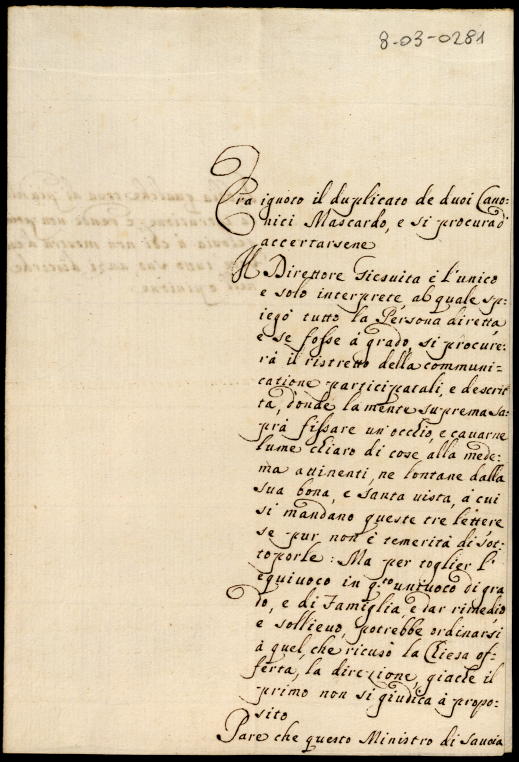 8-03-0281
Era ignoto il duplicato de duoi Cano-
nici Mascardo, e si procurad
accertarsene
Il Direttore Giesuita è l'unico
e solo interprete, al quale spi-
iegò tutto la Persona diretta,
e se fosse à grado, si procure-
rà il ristretto della communi-
catione participatali, e descrit-
ta, donde la mente suprema sa-
prà fissare un'occhio, e cavarne
lume chiaro di cose alla mede-
ma attinenti, ne lontane dalla
sua bona, e santa vista, à cui
si mandano queste tre lettere
se pur non è temerità di sot-
toporle: Ma per toglier l'
equivoco in q.to univoco di gra-
do, e di Famiglia, e dar rimedio
e sollievo, potrebbe ordinarsi
à quel, che ricusò la Chiesa of-
ferta, la direzione, giache il
primo non si giudica à propo-
sito
Pare che questo Ministro di Savoia